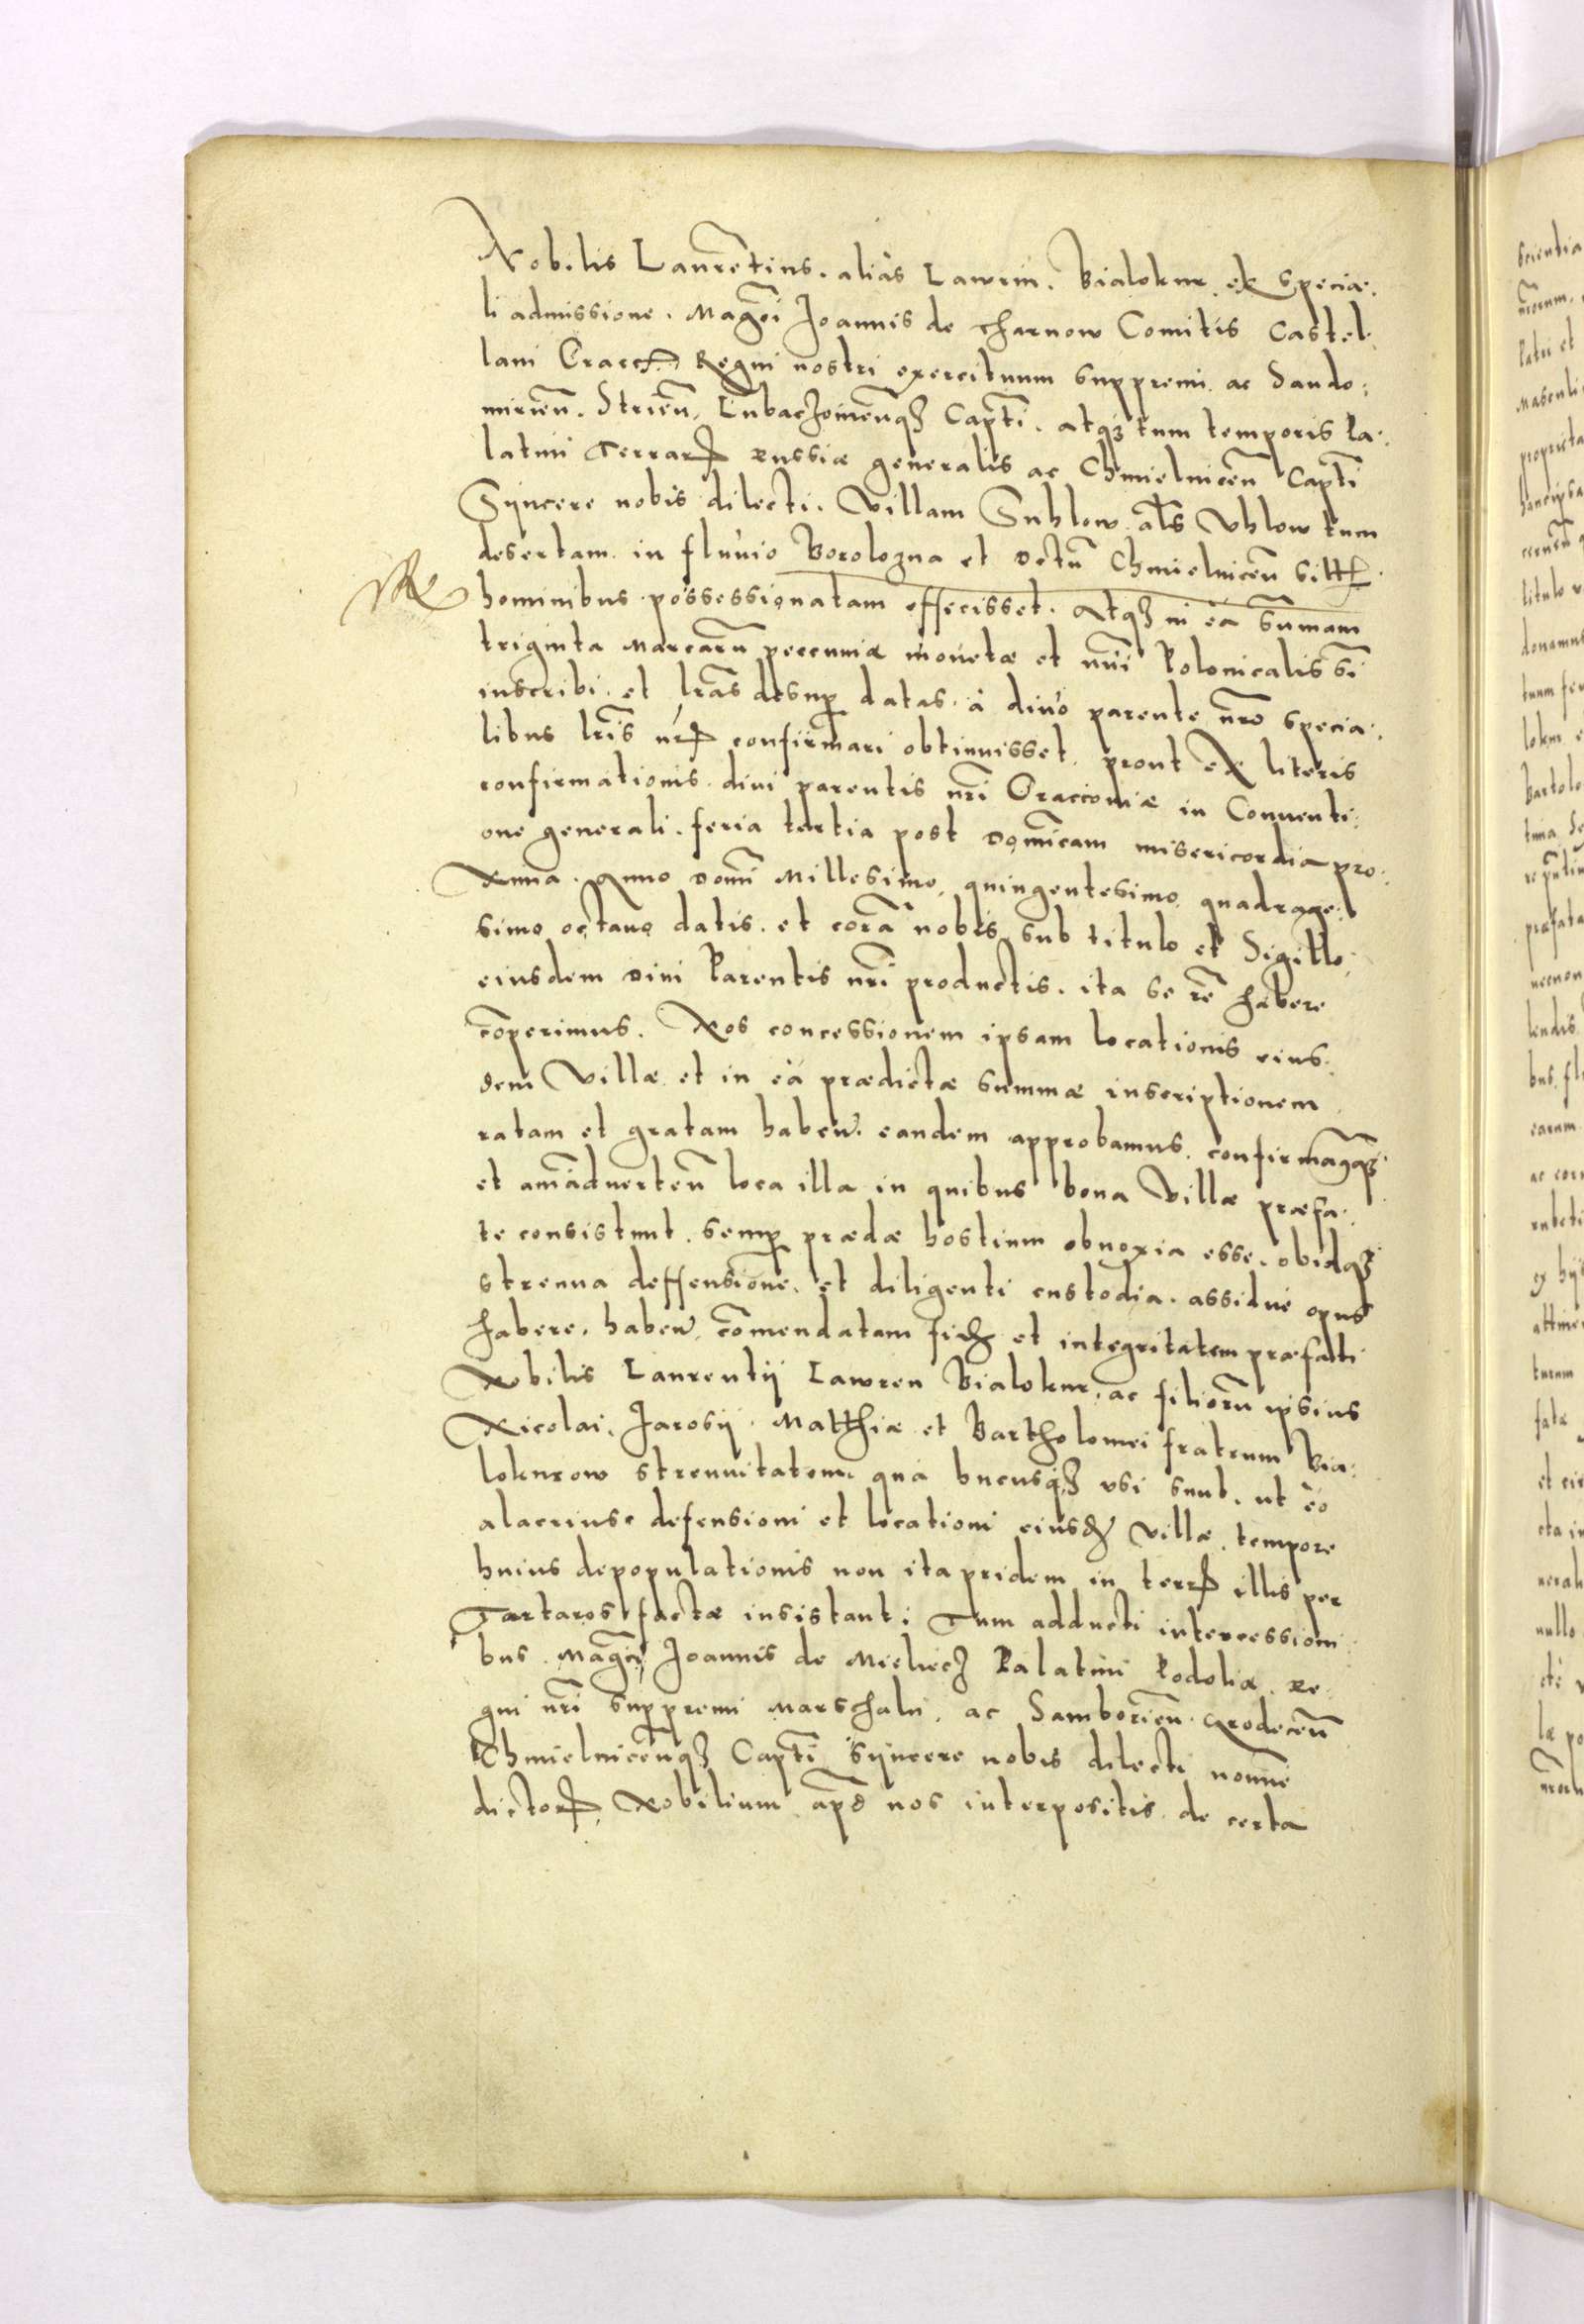 Nobilis Laure͠tius. alias Lawrin. Bialokur ex specia:
li admissione. Mag͠ci Joannis de Tharnow Comitis Castel:
lani Cracc. Regni nostri exercituum suppremi ac Sando:
mirien͠. Strien͠. Lubaczovien͠q3 Capt͠i. atq3 tum temporis Pa:
latini Terrar. Russiæ generalis ac Chmielnicen͠ Capt͠i
Syncere nobis dilecti. Villam Suhlow. al͠s Vhlow tum
desertam in fluvio Borolozna et Dctu͠ Chmielnicen͠ sitt.
hominibus possessionatam effecisset. Atq3 in ea Sum͠am
triginta Marcaru͠ peccuniæ monetæ et nu͠i Polonicalis si͠
inscribi. et lr͠as desup datas. à divo parente nr͠o specia:
libus lr͠is nr͠ confirmari obtinuisset. prout ex literis
confirmationis. divi parentis nr͠i Cracconiæ in Conventi:
one generali. feria tertia post Domi͠cam misericordia pro:
xima. Anno Domi͠ Millesimo. quingentesimo quadrage:
simo octavo datis. et cora͠ nobis sub titulo et Sigillo
eiusdem Divi Parentis nr͠i productis. ita se re͠ habere
co͠perimus. Nos concessionem ipsam locationis eius:
dem Villæ et in ea prædictæ summæ inscriptionem
ratam et gratam haben͠. eandem approbamus. confirmam͠q3
et am͠advertен͠ loca illa in quibus bona Villæ præfa:
te consistunt. semp prædæ hostium obnoxia esse. obidq3
strenua deffensione. et diligenti custodia. assidue opus
habere. haben͠. co͠mendatam fid. et integritatem præfati
Nobilis Laurentij Lawren Bialokur. ac filioru͠ ipsius
Nicolai. Jarosij. Matthiæ et Bartholomei fratrum Bia:
lokurow strenuitatem. qua hucusq3 usi sunt. ut eo
alacrius defensioni et locationi eiusd. villæ. tempore
huius depopulationis non ita pridem in terr. illis per
Tartaros factæ insistant: Tum adducti intercessioni:
bus. Mag͠ci Joannis de Mieliecz Palatini Podoliæ. Re
gni nr͠i suppremi Marschalci. ac Samborien͠. Grodecen͠
Chmielnicen͠q3 Capt͠i syncere nobis dilecti nomi͠e
dictor. Nobilium ap͠d nos interpositis. de certa